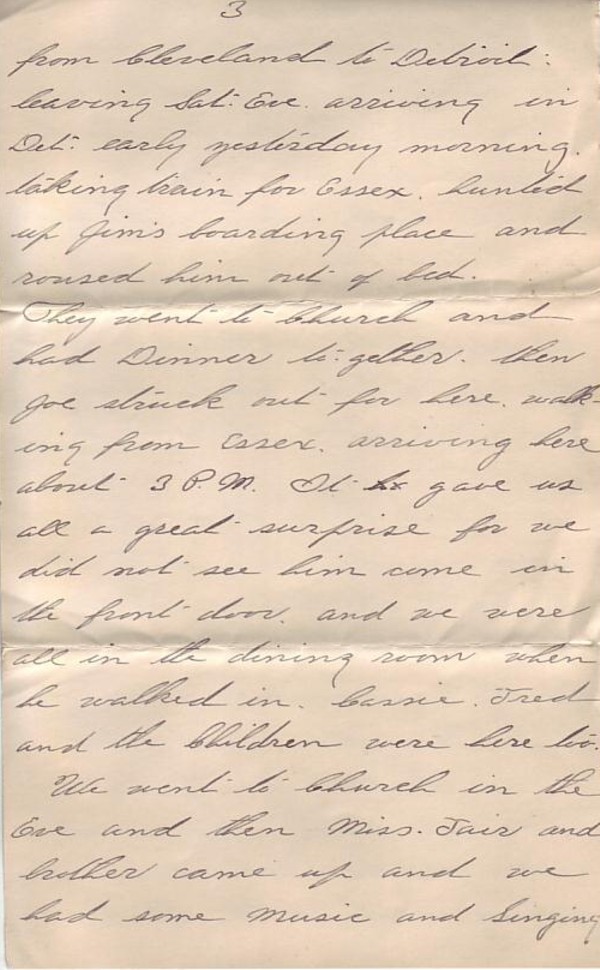 3
from Cleveland to Detroit:
leaving Sat: Eve. arriving in
Det: early yesterday morning.
taking train for Essex. hunted
up Jim's boarding place and
roused him out of bed.
They went to Church and
had Dinner to-gether. then
Joe struck out for here. walk-
ing from Essex. arriving here
about 3 P.M. It gave us
all a great surprise for we
did not see him come in
the front door. and we were
all in the dining room when
he walked in. Cassie. Fred
and the Children were here too.
We went to Church in the
Eve and then Miss. Fair and
brother came up and we
had some music and Singing